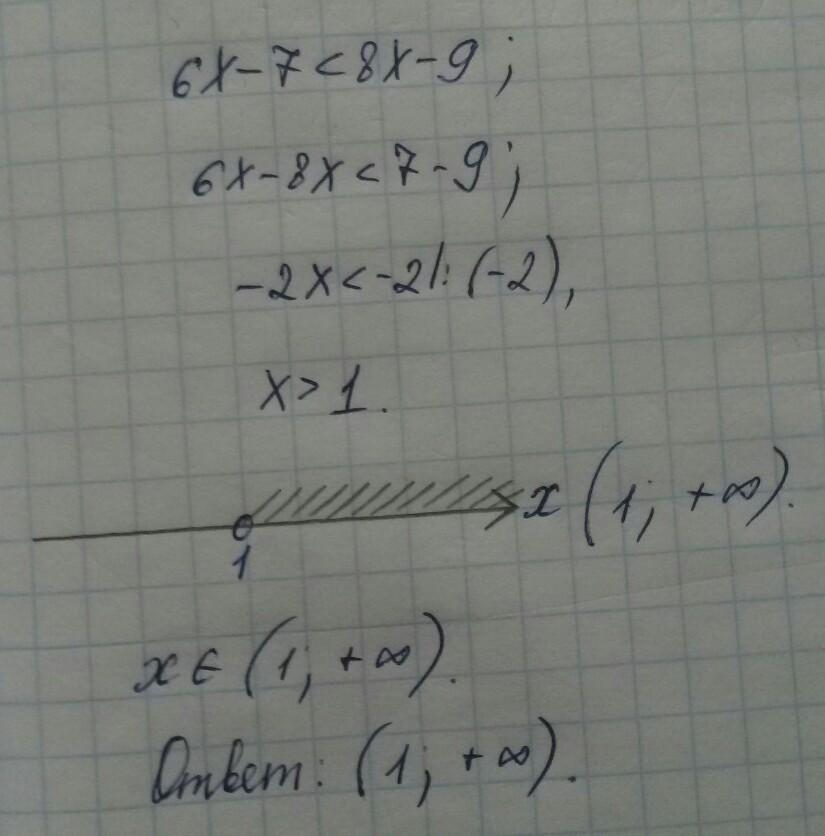 6x-7<8x-9;
6x-8x<7-9;
-2x<-2|:(-2),
x>1.
x (1; +∞).
1
x∈(1; +∞).
Ответ: (1; +∞).